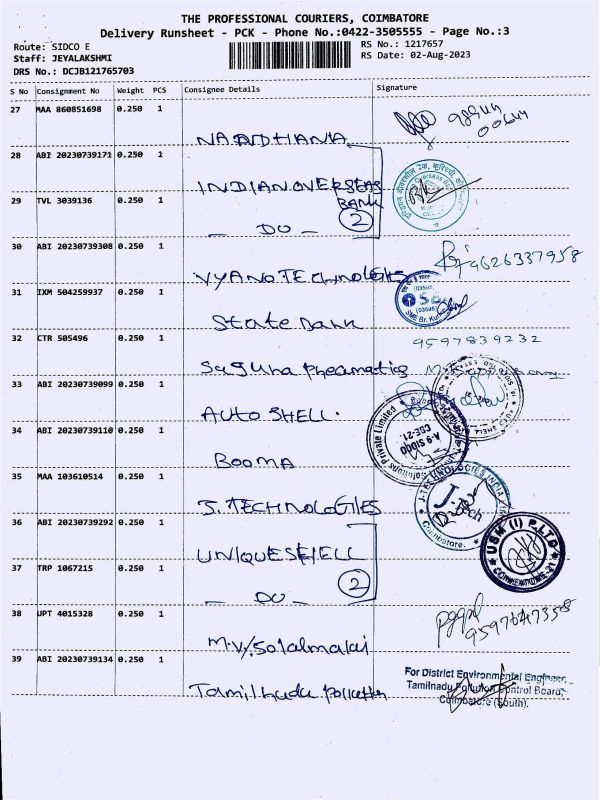 THE PROFESSIONAL COURIERS, COIMBATORE
Delivery Runsheet - PCK - Phone No.:0422-3505555 - Page No.:3
Route: SIDCO E
RS No.: 1217657
Staff: JEYALAKSHMI
RS Date: 02-Aug-2023
DRS No.: DCJB121765703
S No Consignment No Weight PCS Consignee Details Signature
27 MAA 860851698 0.250 1
28 ABI 20230739171 0.250 1
INDIAN OVERSEAS
29 TVL 3039136 0.250 1
BANK
— DO — 2
30 ABI 20230739308 0.250 1
9626337958
VYANO TECHNOLOGIES
31 IXM 504259937 0.250 1
State Bank
32 CTR 505496 0.250 1
9597839232
Suguna Pneumatics
33 ABI 20230739099 0.250 1
AUTO SHELL.
34 ABI 20230739110 0.250 1
Private Limited
A-9 SIDCO
CBE-21.
BOOMA
35 MAA 103610514 0.250 1
J-TECHNOLOGIES INDIA
J Tech
Coimbatore.
J. TECHNOLOGIES
36 ABI 20230739292 0.250 1
USM (I) P.LTD
COIMBATORE-21
UNIQUE SHELL
37 TRP 1067215 0.250 1
— DO — 2
38 UPT 4015328 0.250 1
9597647358
39 ABI 20230739134 0.250 1
For District Environmental Engineer,
Tamilnadu Pollution Control Board,
Coimbatore (South).
Tamilnadu Pollution